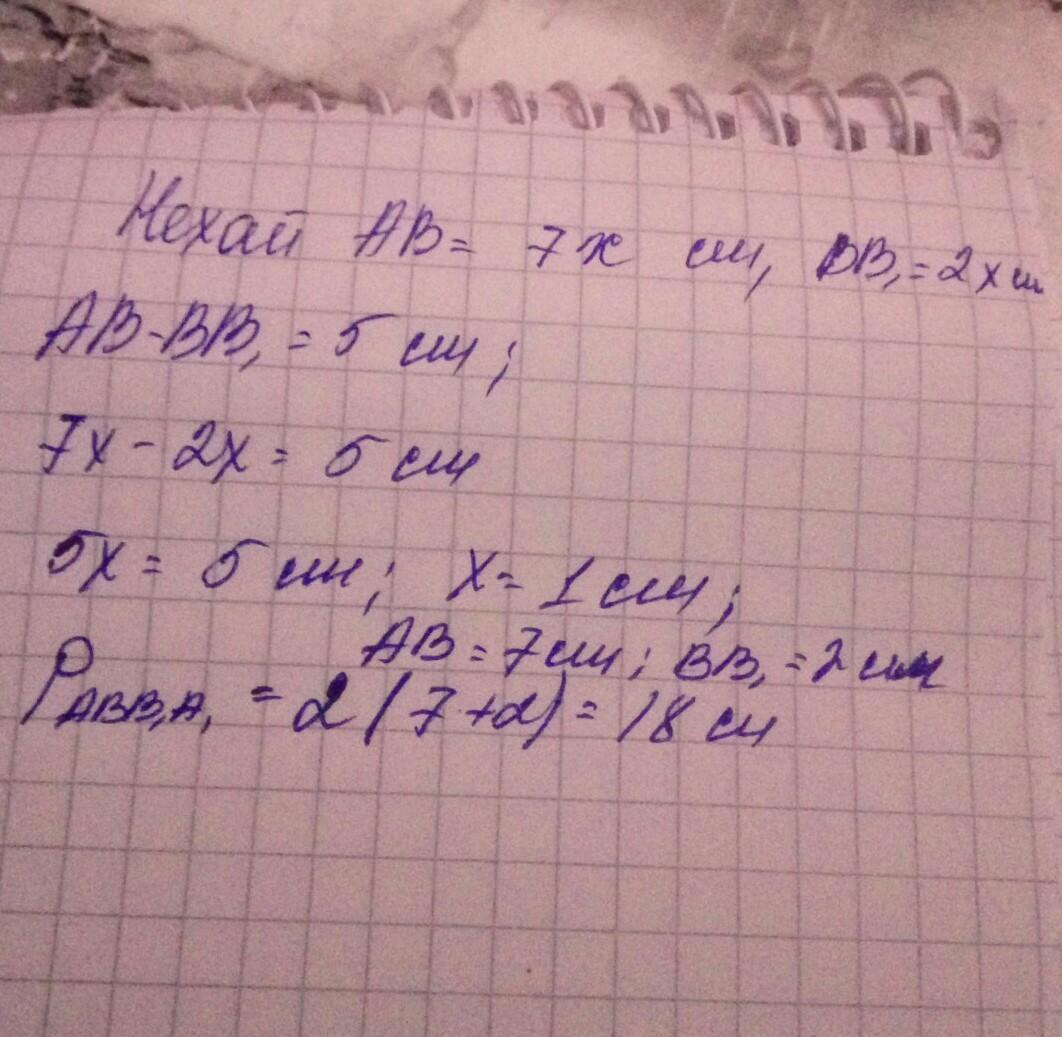 Нехай AB = 7x см, BB₁ = 2x см
AB - BB₁ = 5 см;
7x - 2x = 5 см
5x = 5 см; x = 1 см;
AB = 7 см; BB₁ = 2 см
P ABB₁A₁ = 2 (7+2) = 18 см